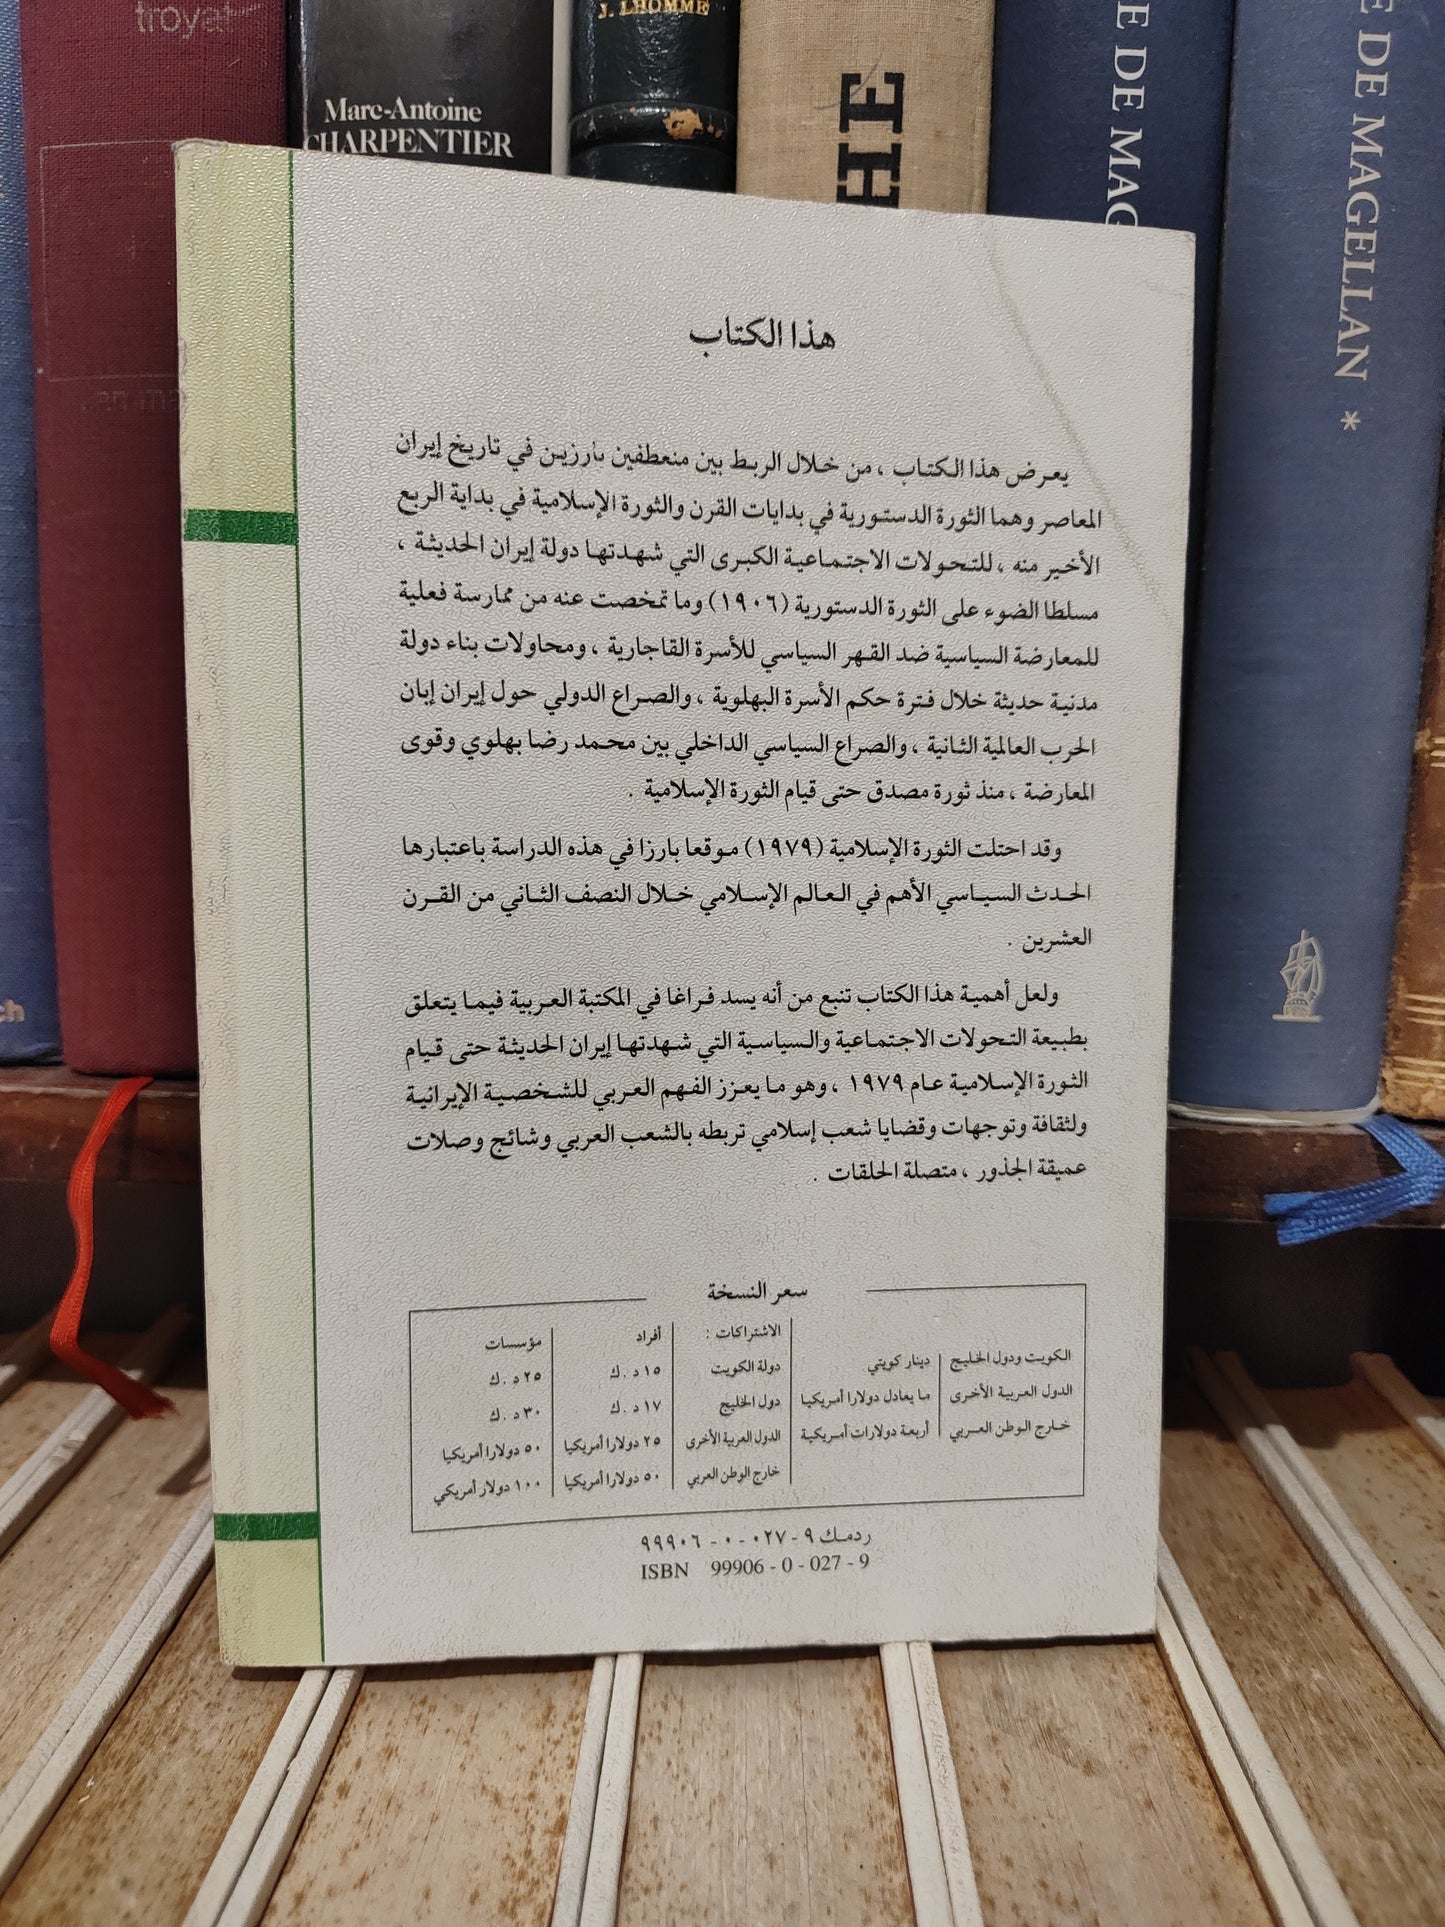 troyat
Marc-Antoine
CHARPENTIER
J. LHOMME
HE
E DE MAG
E DE MAGELLAN *
هذا الكتاب
يعرض هذا الكتاب ، من خلال الربط بين منعطفين بارزين في تاريخ إيران
المعاصر وهما الثورة الدستورية في بدايات القرن والثورة الإسلامية في بداية الربع
الأخير منه ، للتحولات الاجتماعية الكبرى التي شهدتها دولة إيران الحديثة ،
مسلطا الضوء على الثورة الدستورية (١٩٠٦) وما تمخصت عنه من ممارسة فعلية
للمعارضة السياسية ضد القهر السياسي للأسرة القاجارية ، ومحاولات بناء دولة
مدنية حديثة خلال فترة حكم الأسرة البهلوية ، والصراع الدولي حول إيران إبان
الحرب العالمية الثانية ، والصراع السياسي الداخلي بين محمد رضا بهلوي وقوى
المعارضة ، منذ ثورة مصدق حتى قيام الثورة الإسلامية .
وقد احتلت الثورة الإسلامية (١٩٧٩) موقعا بارزا في هذه الدراسة باعتبارها
الحدث السياسي الأهم في العالم الإسلامي خلال النصف الثاني من القرن
العشرين .
ولعل أهمية هذا الكتاب تنبع من أنه يسد فراغا في المكتبة العربية فيما يتعلق
بطبيعة التحولات الاجتماعية والسياسية التي شهدتها إيران الحديثة حتى قيام
الثورة الإسلامية عام ١٩٧٩ ، وهو ما يعزز الفهم العربي للشخصية الإيرانية
ولثقافة وتوجهات وقضايا شعب إسلامي تربطه بالشعب العربي وشائج وصلات
عميقة الجذور ، متصلة الحلقات .
سعر النسخة
الكويت ودول الخليج دينار كويتي
الدول العربية الأخرى ما يعادل دولارا أمريكيا
خارج الوطن العربي أربعة دولارات أمريكية
الاشتراكات : أفراد مؤسسات
دولة الكويت ١٥ د.ك ٢٥ د.ك
دول الخليج ١٧ د.ك ٣٠ د.ك
الدول العربية الأخرى ٢٥ دولارا أمريكيا ٥٠ دولارا أمريكيا
خارج الوطن العربي ٥٠ دولارا أمريكيا ١٠٠ دولار أمريكي
ردمك ٩ - ٠٢٧ - ٠ - ٩٩٩٠٦
ISBN 99906 - 0 - 027 - 9